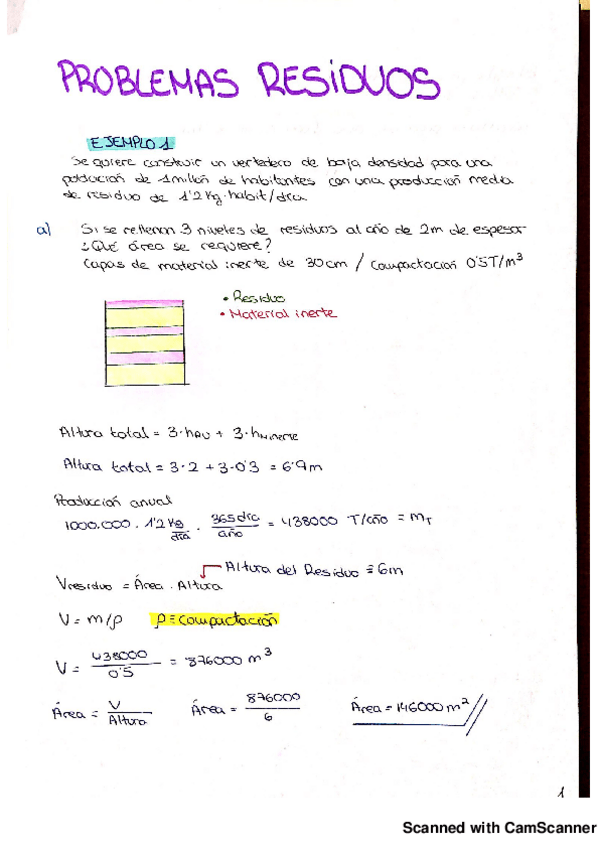 PROBLEMAS RESIDUOS
EJEMPLO 1
Se quiere construir un vertedero de baja densidad para una
población de 1 millón de habitantes con una producción media
de residuo de 1'2 Kg. habit/día.
a) Si se rellenan 3 niveles de residuos al año de 2m de espesor
¿Qué área se requiere?
Capas de material inerte de 30cm / Compactación 0'5T/m³
• Residuo
• Material inerte
Altura total = 3·hRU + 3·hMinerte
Altura total = 3·2 + 3·0'3 = 6'9m
Producción anual
1000.000 · 1'2 Kg/día · 365 día/año = 438000 T/año = mT
Altura del Residuo = 6m
Vresiduo = Área · Altura
V = m/ρ ρ = compactación
V = 438000/0'5 = 876000 m³
Área = V/Altura Área = 876000/6 Área = 146000 m²
1
Scanned with CamScanner